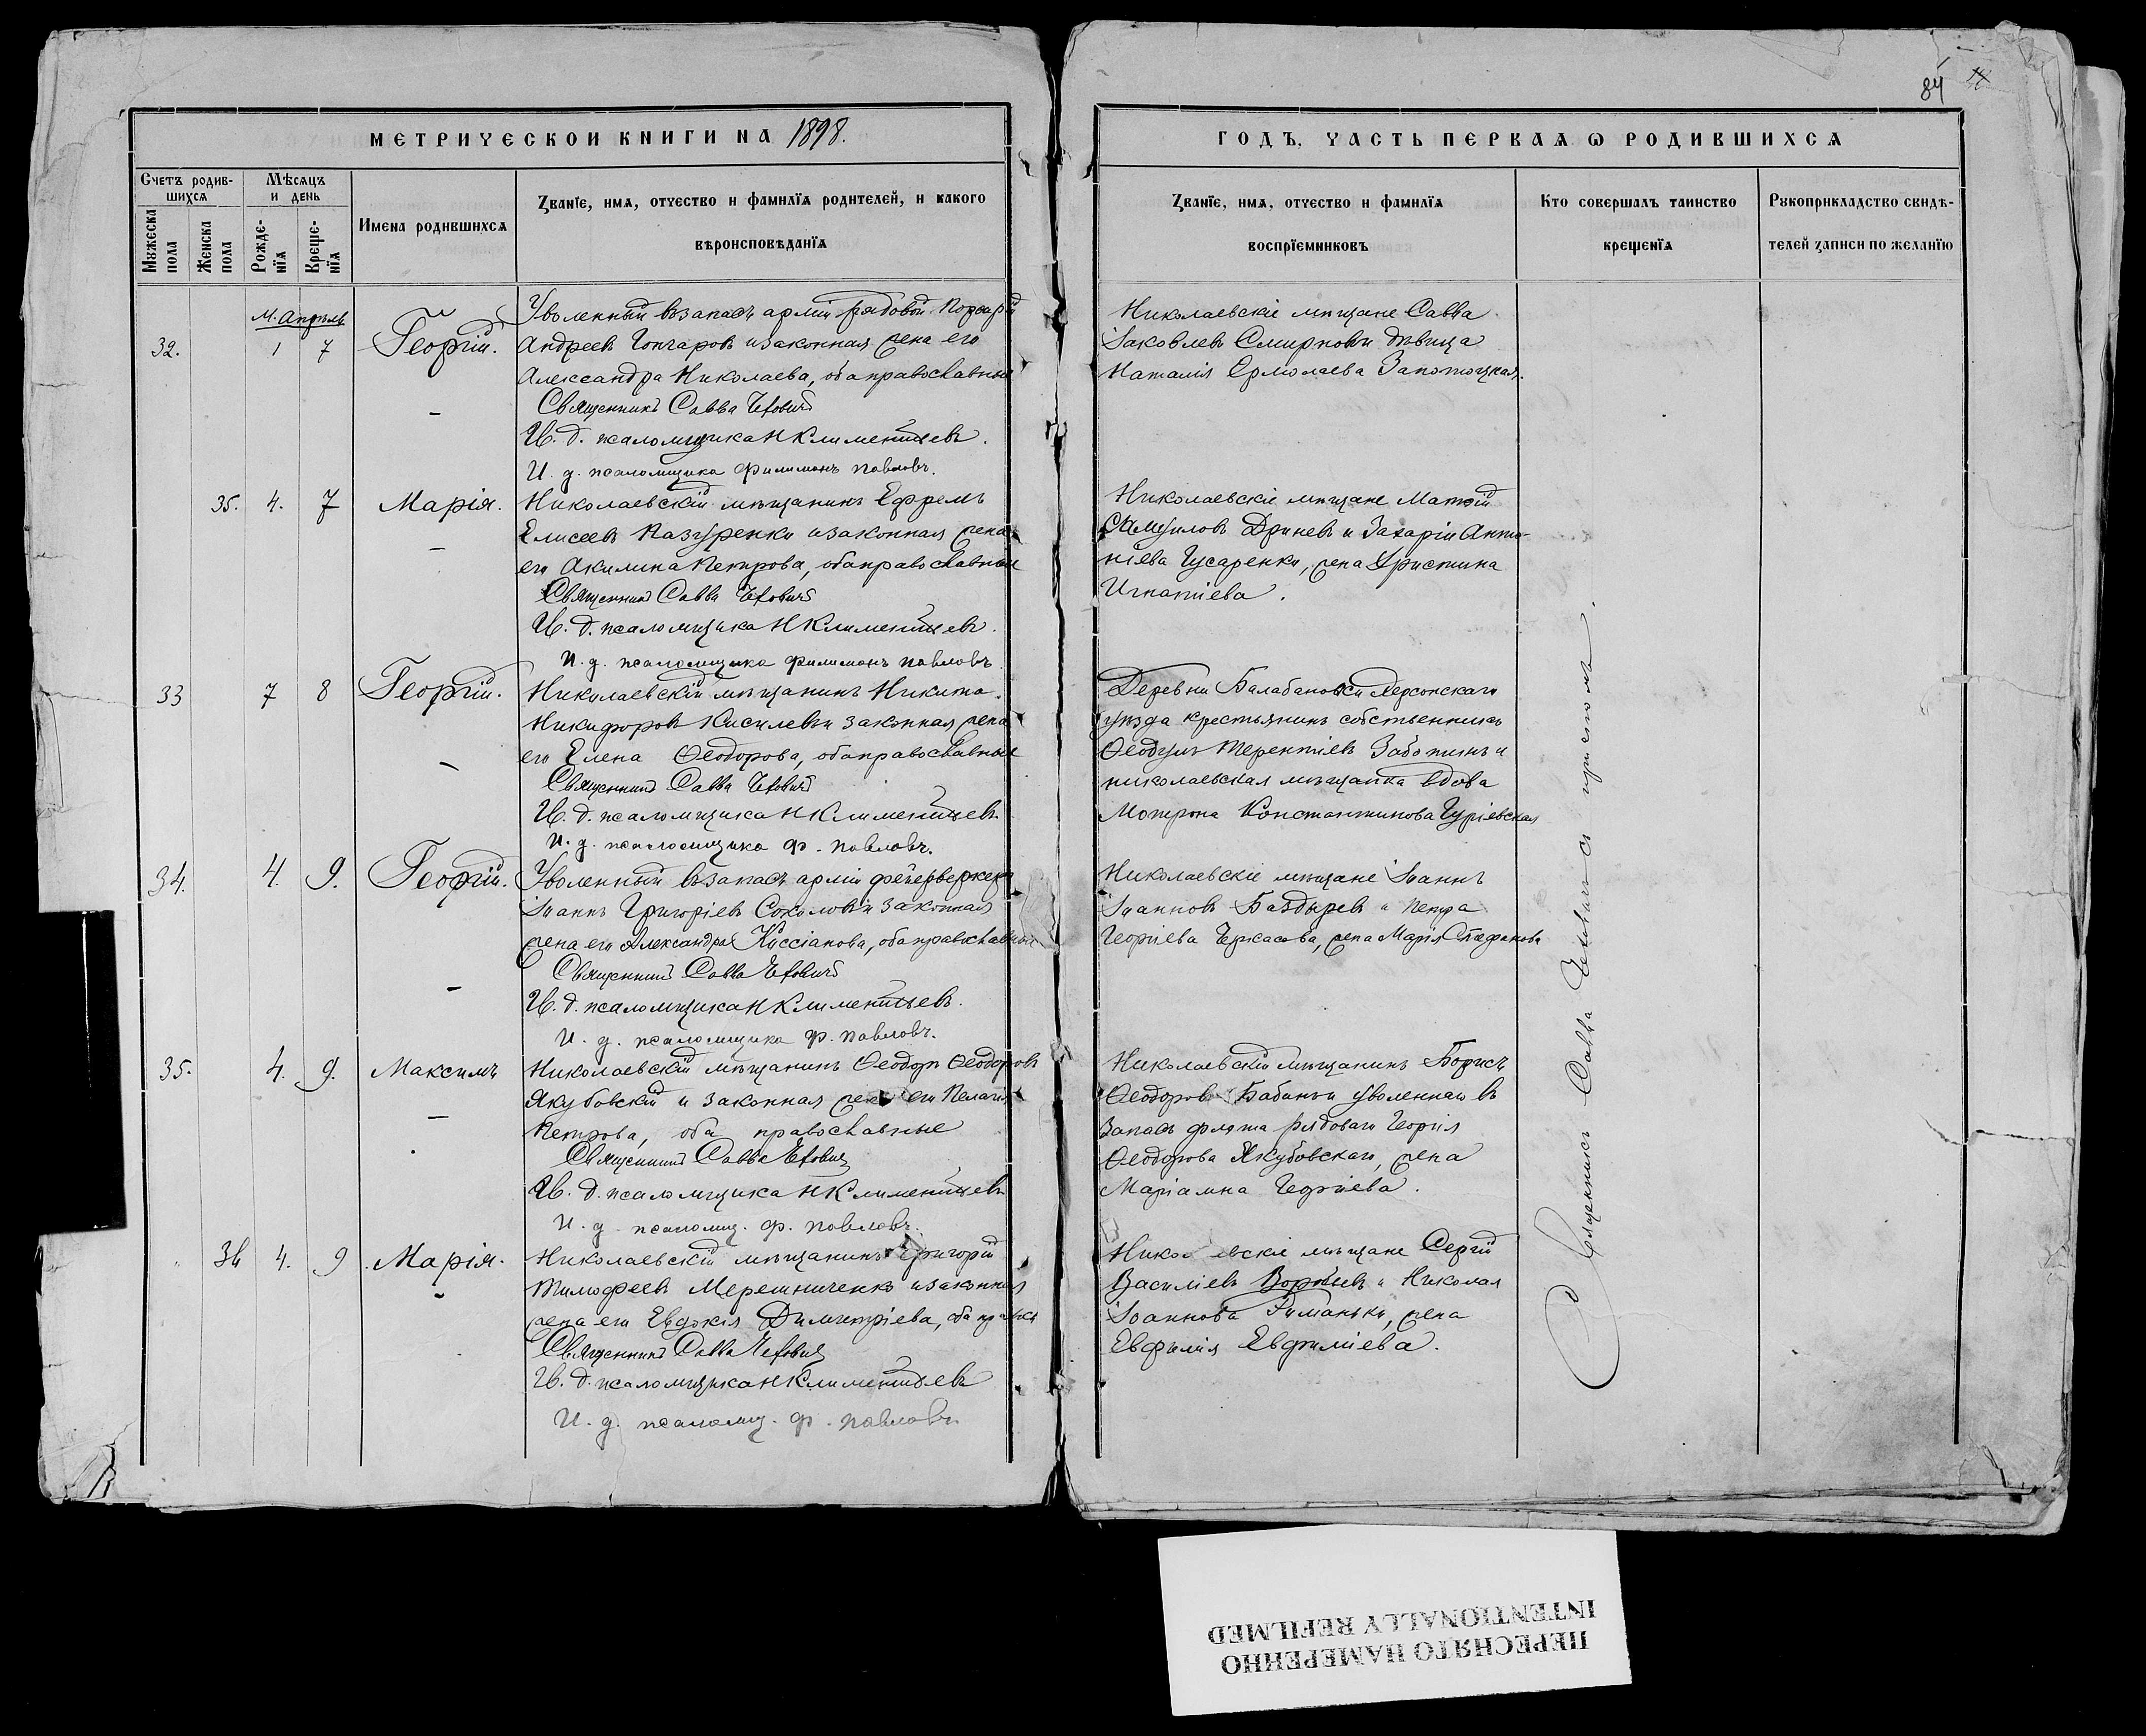 84
МЕТРИЧЕСКОЙ КНИГИ НА 1898.
ГОДЪ, ЧАСТЬ ПЕРВАЯ Ѡ РОДИВШИХСЯ
Счетъ родив-
шихся
Мужеска пола
Женска пола
Мѣсяцъ
и день
Рожде-
нїя
Креще-
нїя
Имена родившихся
Званїе, имя, отчество и фамилїя родителей, и какого
вѣроисповѣданїя
Званїе, имя, отчество и фамилїя
воспрїемниковъ
Кто совершалъ таинство
крещенїя
Рукоприкладство свидѣ-
телей записи по желанїю
М. Апрѣль
32. 1 7 Георгій.
Уволенный въ запасъ арміи рядовой
Андреевъ Гончаровъ и законная жена его
Александра Николаева, оба православные
Священникъ Савва Чехович
И. д. псаломщика Н Климентьевъ.
И. д. псаломщика Филимонъ Павловъ.
Николаевскіе мѣщане Савва
Іаковлевъ Смирновъ и дѣвица
Наталія Ермолаева
35. 4. 7 Марія.
Николаевскій мѣщанинъ Ефремъ
Елисеевъ Казуренко и законная жена
его Акилина Петрова, оба православные
Священник Савва Чехович
И. д. псаломщика Н Климентьевъ.
И. д. псаломщика Филимонъ Павловъ.
Николаевскіе мѣщане Матѳій
Самуиловъ и Захарія Анто-
ніева Гусаренко, жена Христина
Игнатіева.
33 7 8 Георгій.
Николаевскій мѣщанинъ Никита
Никифоровъ Киселевъ и законная жена
его Елена Ѳеодорова, оба православные
Священник Савва Чехович
И. д. псаломщика Н Климентьевъ
И. д. псаломщика Ф. Павловъ.
Деревни Балабановки Херсонскаго
уѣзда крестьянинъ собственникъ
Ѳеодулъ Терентіевъ и
николаевская мѣщанка вдова
Мотрона Константинова Гуріевская
34. 4. 9. Георгій.
Уволенный въ запасъ арміи фейерверкеръ
Іоаннъ Григоріевъ Соколовъ и законная
жена его Александра Кассіанова, оба православные
Священник Савва Чехович
И. д. псаломщика Н Климентьевъ.
И. д. псаломщика Ф. Павловъ.
Николаевскіе мѣщане Іоаннъ
Іоанновъ Баздыревъ и Петра
Георгіева Черкасова, жена Марія Стефанова
35. 4. 9. Максимъ
Николаевскій мѣщанинъ Ѳеодоръ Ѳеодоровъ
Якубовскій и законная жена его Пелагія
Петрова, оба православные
Священник Савва Чехович
И. д. псаломщика Н Климентьевъ
И. д. псаломщ. Ф. Павловъ.
Николаевскій мѣщанинъ Борисъ
Ѳеодоровъ и уволеннаго въ
запасъ флота рядоваго Георгія
Ѳеодорова Якубовскаго, жена
Маріамна Георгіева.
36 4. 9 Марія.
Николаевскій мѣщанинъ Григорій
Тимофеевъ Мерешниченко и законная
жена его Евдокія Димитріева, оба правосл
Священник Савва Чехович
И. д. псаломщика Н Климентьевъ
И. д. псаломщ. Ф. Павловъ
Николаевскіе мѣщане Сергій
Василіевъ и Николая
Іоаннова жена
Евфимія Евфиміева.
Священникъ Савва Чехович съ причтомъ.
ПЕРЕСНЯТО НАМЕРЕННО
INTENTIONALLY REFILMED